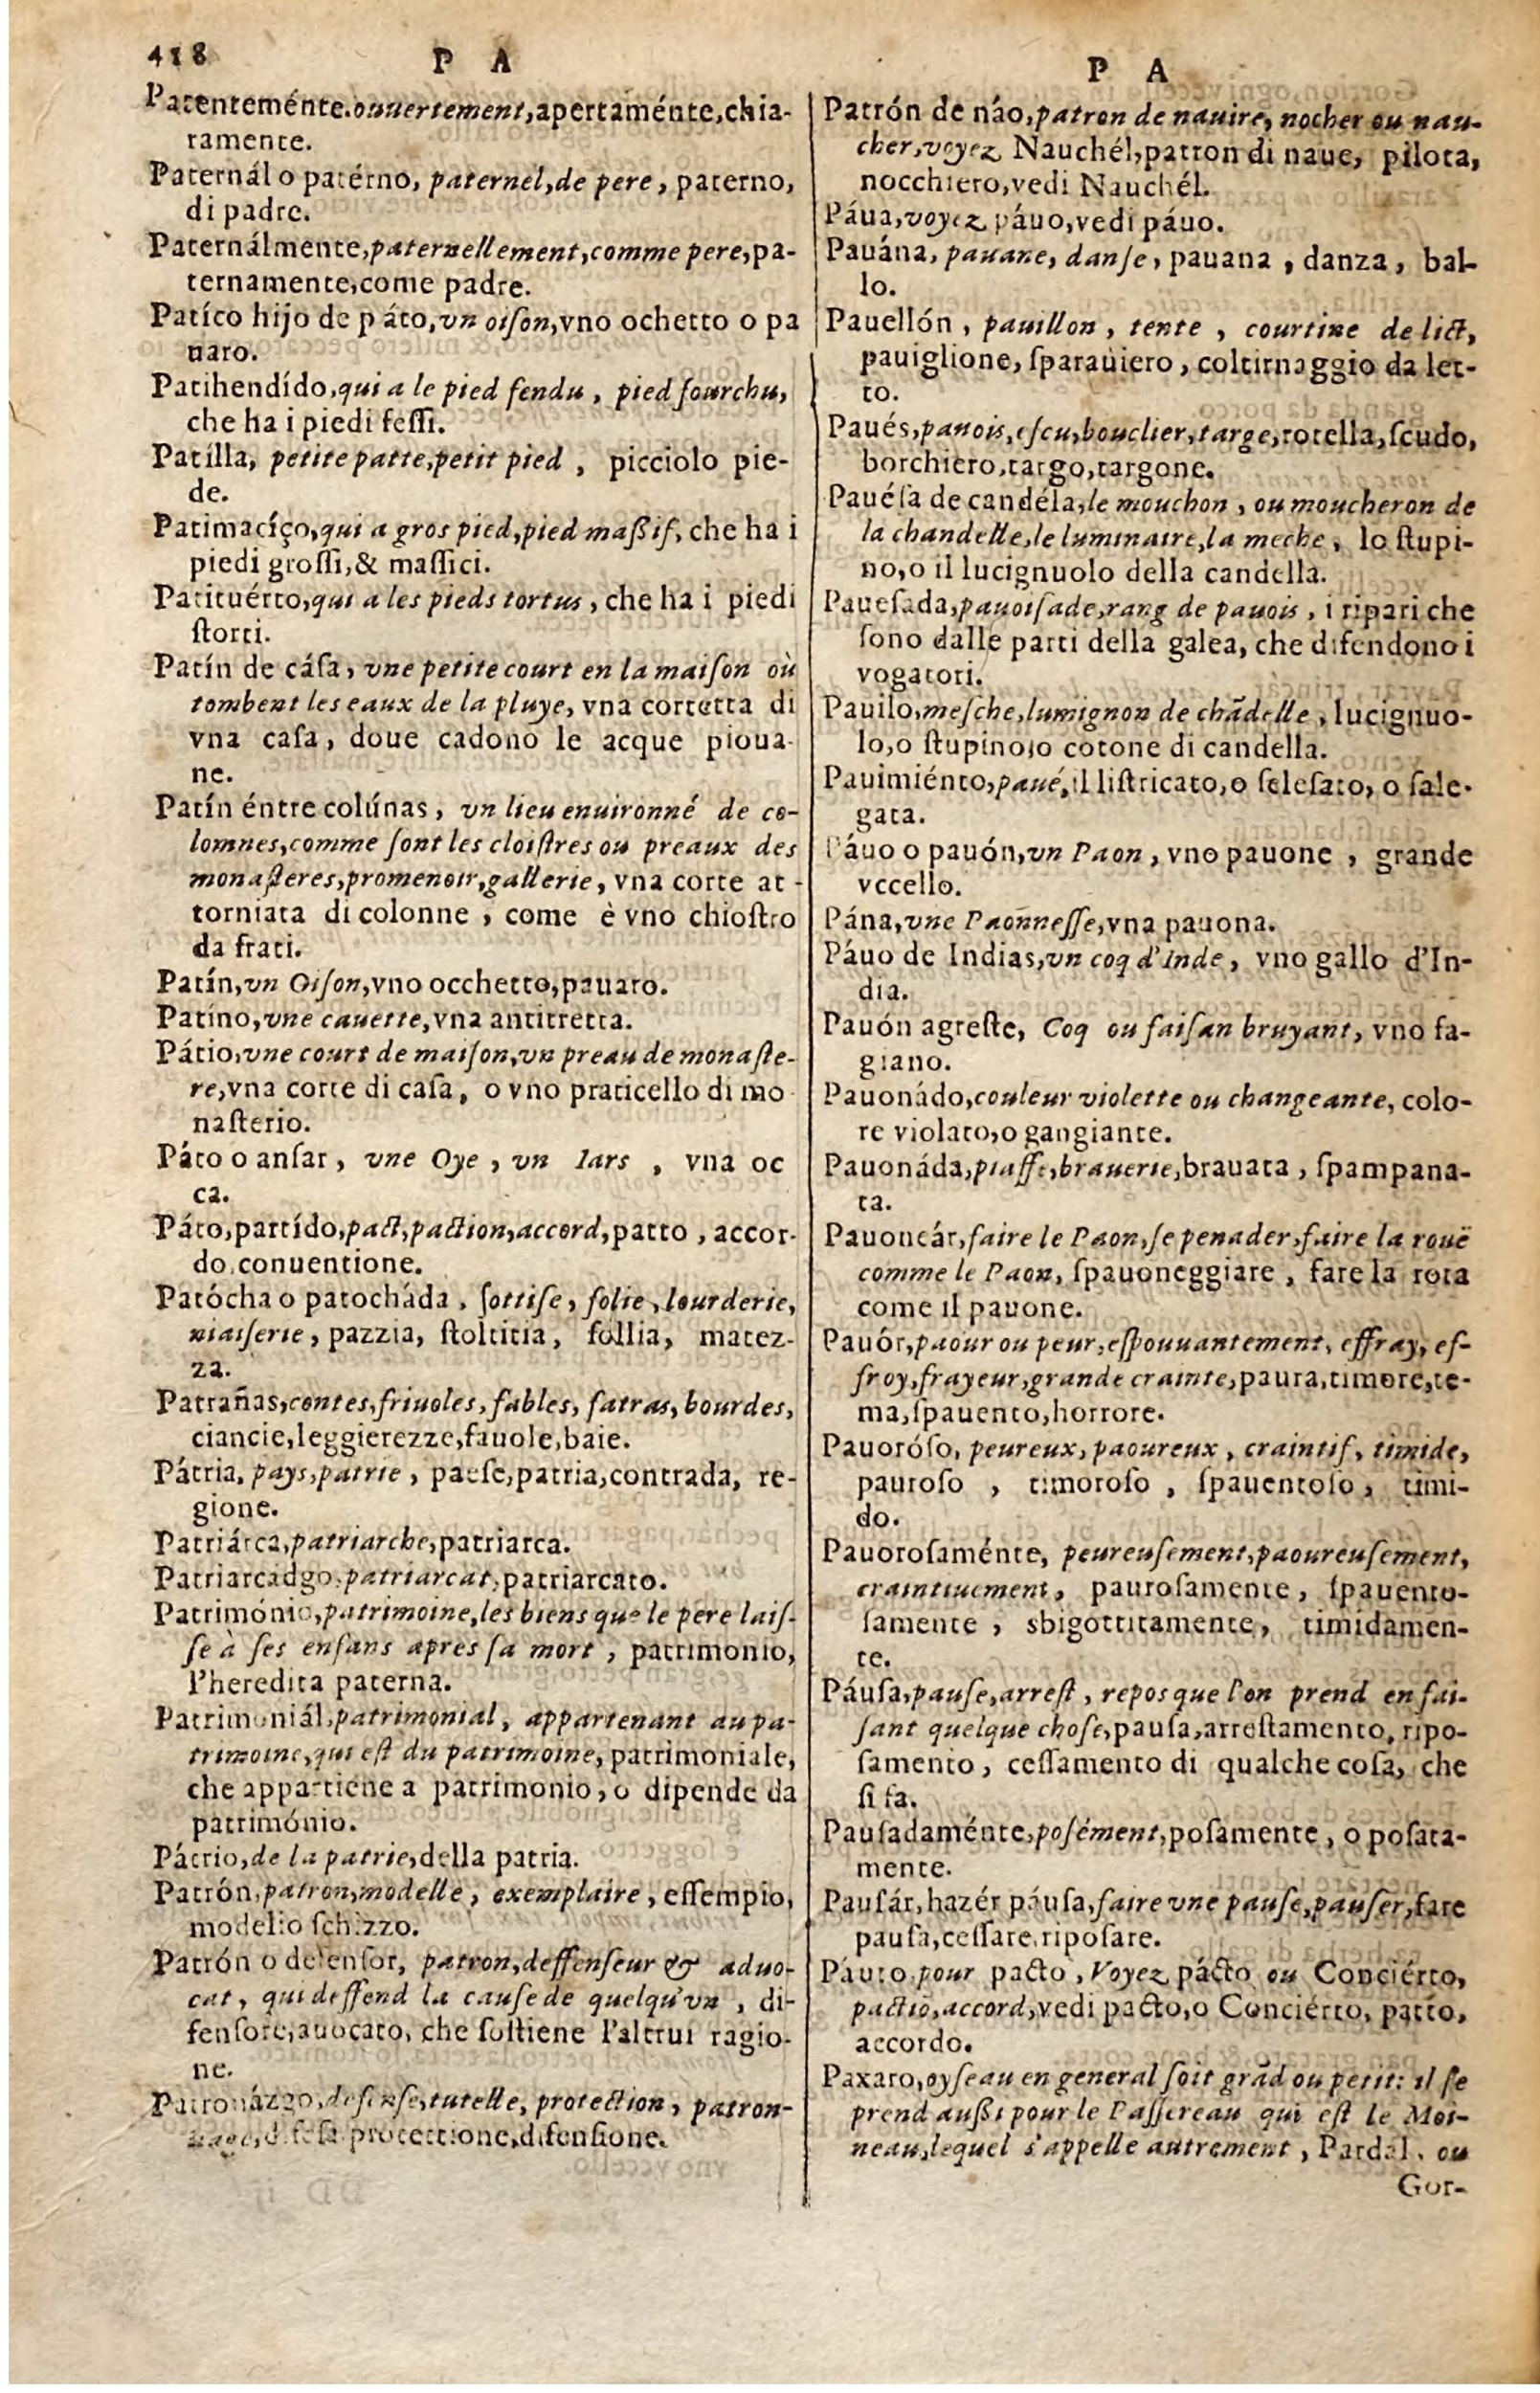 418 P A
Patenteménte. ouuertement, apertaménte, chia-
ramente.
Paternál o patérno, paternel, de pere, paterno,
di padre.
Paternálmente, paternellement, comme pere, pa-
ternamente, come padre.
Patíco hijo de páto, vn oiſon, vno ochetto o pa
uaro.
Patihendído, qui a le pied fendu, pied fourchu,
che ha i piedi feſſi.
Patílla, petite patte, petit pied, picciolo pie-
de.
Patimacíço, qui a gros pied, pied maßif, che ha i
piedi groſſi, & maſſici.
Patituérto, qui a les pieds tortus, che ha i piedi
ſtorti.
Patín de cáſa, vne petite court en la maiſon où
tombent les eaux de la pluye, vna cortetta di
vna caſa, doue cadono le acque pioua-
ne.
Patín éntre colúnas, vn lieu enuironné de co-
lomnes, comme ſont les cloiſtres ou preaux des
monaſteres, promenoir, gallerie, vna corte at-
torniata di colonne, come è vno chioſtro
da frati.
Patín, vn Oiſon, vno occhetto, pauaro.
Patino, vne cauette, vna antitretta.
Pátio, vne court de maiſon, vn preau de monaſte-
re, vna corte di caſa, o vno praticello di mo-
naſterio.
Páto o anſar, vne Oye, vn Iars, vna oc
ca.
Páto, partído, pact, paction, accord, patto, accor-
do, conuentione.
Patócha o patocháda, ſottiſe, folie, lourderie,
niaiſerie, pazzia, ſtoltitia, follia, matez-
za.
Patrañas, contes, friuoles, fables, fatras, bourdes,
ciancie, leggierezze, fauole, baie.
Pátria, pays, patrie, paeſe, patria, contrada, re-
gione.
Patriárca, patriarche, patriarca.
Patriarcádgo, patriarcat, patriarcato.
Património, patrimoine, les biens que le pere laiſ-
ſe à ſes enfans apres ſa mort, patrimonio,
l'heredita paterna.
Patrimoniál, patrimonial, appartenant au pa-
trimoine, qui eſt du patrimoine, patrimoniale,
che appartiene a patrimonio, o dipende da
património.
Pátrio, de la patrie, della patria.
Patrón, patron, modelle, exemplaire, eſſempio,
modello ſchizzo.
Patrón o defenſor, patron, deffenſeur & aduo-
cat, qui deffend la cauſe de quelqu'vn, di-
fenſore, auocato, che ſoſtiene l'altrui ragio-
ne.
Patronázgo, defenſe, tutelle, protection, patron-
nage, difeſa protettione, difenſione.
P A
Patrón de náo, patron de nauire, nocher ou nau-
cher, voyez Nauchél, patron di naue, pilota,
nocchiero, vedi Nauchél.
Páua, voyez páuo, vedi páuo.
Pauána, pauane, danſe, pauana, danza, bal-
lo.
Pauellón, pauillon, tente, courtine de lict,
pauiglione, ſparauiero, coltirnaggio da let-
to.
Paués, pauois, eſcu, bouclier, targe, rotella, ſcudo,
borchiero, targo, targone.
Pauéſa de candéla, le mouchon, ou moucheron de
la chandelle, le luminaire, la meche, lo ſtupi-
no, o il lucignuolo della candella.
Paueſada, pauoiſade, rang de pauois, i ripari che
ſono dalle parti della galea, che difendono i
vogatori.
Pauilo, meſche, lumignon de chãdelle, lucignuo-
lo, o ſtupino, o cotone di candella.
Pauimiénto, paué, il liſtricato, o ſeleſato, o ſale-
gata.
Páuo o pauón, vn Paon, vno pauone, grande
vccello.
Pána, vne Paonneſſe, vna pauona.
Páuo de Indias, vn coq d'Inde, vno gallo d'In-
dia.
Pauón agreſte, Coq ou faiſan bruyant, vno fa-
giano.
Pauonádo, couleur violette ou changeante, colo-
re violato, o gangiante.
Pauonáda, piaffe, brauerie, brauata, ſpampana-
ta.
Pauoneár, faire le Paon, ſe penader, faire la rouë
comme le Paon, ſpauoneggiare, fare la rota
come il pauone.
Pauór, paour ou peur, eſpouuantement, effray, eſ-
froy, frayeur, grande crainte, paura, timore, te-
ma, ſpauento, horrore.
Pauoróſo, peureux, paoureux, craintif, timide,
pauroſo, timoroſo, ſpauentoſo, timi-
do.
Pauoroſaménte, peureuſement, paoureuſement,
craintiuement, pauroſamente, ſpauento-
ſamente, sbigottitamente, timidamen-
te.
Páuſa, pauſe, arreſt, repos que l'on prend en fai-
ſant quelque choſe, pauſa, arreſtamento, ripo-
ſamento, ceſſamento di qualche coſa, che
ſi fa.
Pauſadaménte, poſément, poſamente, o poſata-
mente.
Pauſár, hazér páuſa, faire vne pauſe, pauſer, fare
pauſa, ceſſare, ripoſare.
Páuto pour pacto, Voyez pácto ou Conciérto,
pactiõ, accord, vedi pacto, o Conciérto, patto,
accordo.
Paxaro, oyſeau en general ſoit grãd ou petit: il ſe
prend außi pour le Paſſereau qui eſt le Moi-
neau, lequel s'appelle autrement, Pardal, ou
Gor-